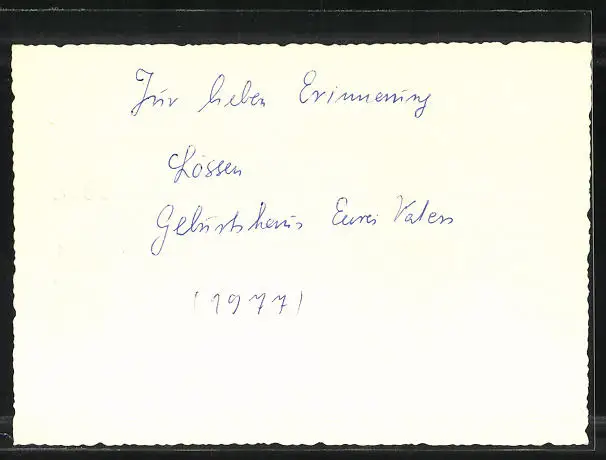 Zur lieben Erinnerung
Lossen
Geburtshaus Eures Vaters
(1977)